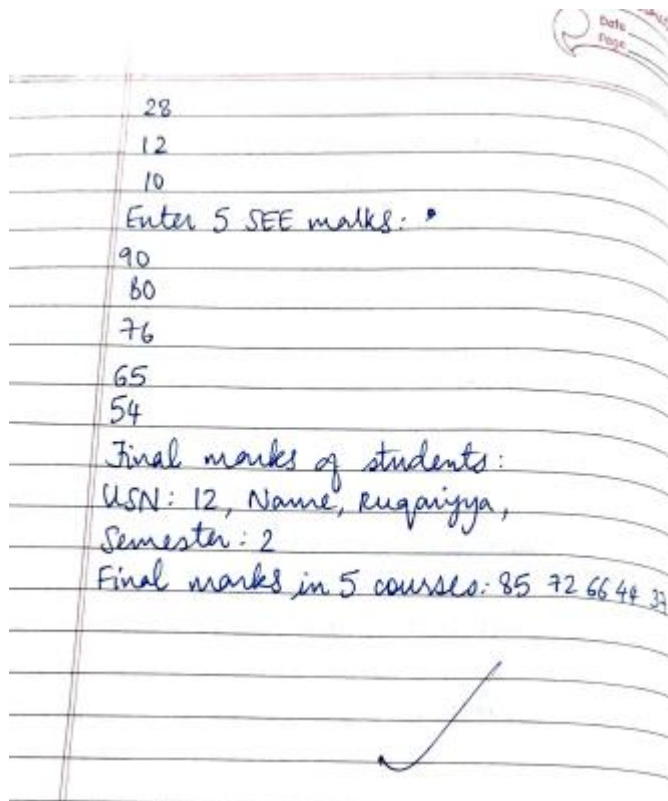 Date
Page
28
12
10
Enter 5 SEE malks:
90
80
76
65
54
Final marks of students:
USN: 12, Name, Ruqaiyya,
Semester: 2
Final marks in 5 courses: 85 72 66 44 37